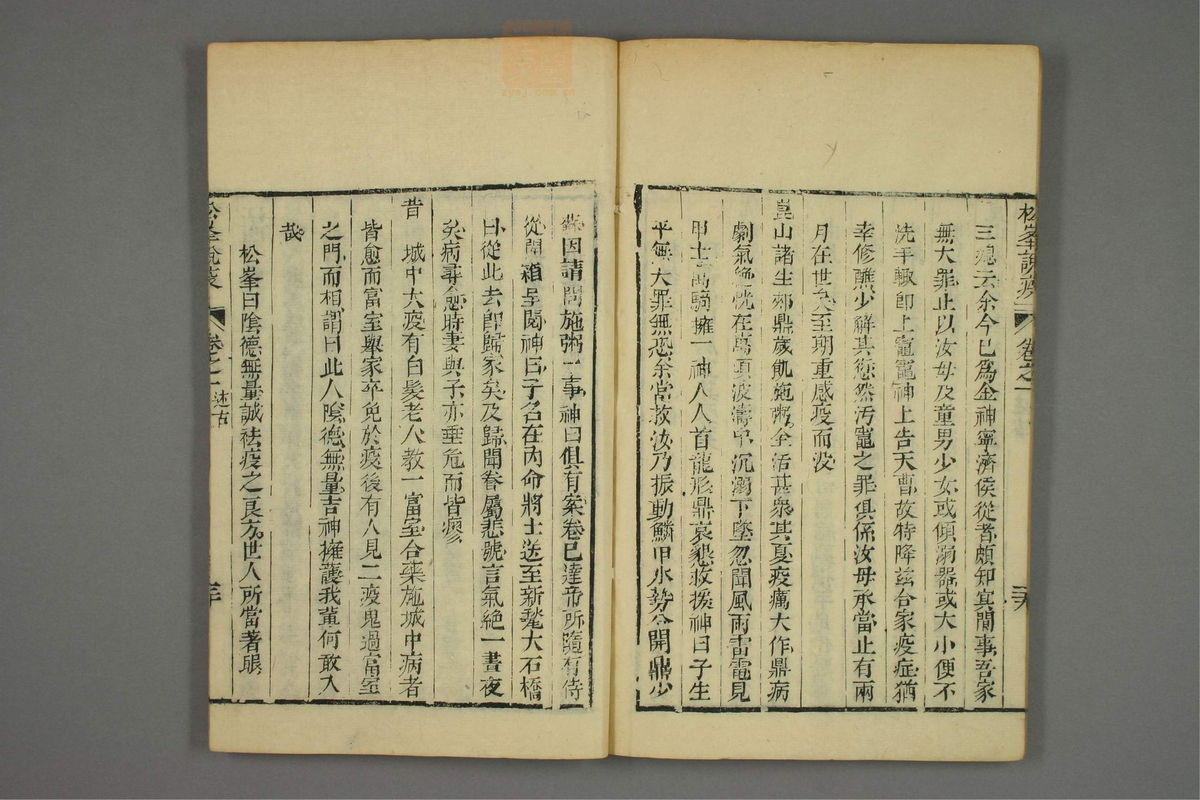 松峯說疫 卷之一 二十九
三魂云余今已爲金神寧濟侯從者頗知冥間事吾家
無大罪止以汝母及童男少女或傾溺器或大小便不
洗手輙卽上竈竈神上告天曹故特降兹合家疫症猶
幸修醮少解其愆然汚竈之罪俱係汝母承當止有兩
月在世矣至期重感疫而没
崑山諸生郊鼎歲飢施粥全活甚衆其夏疫癘大作鼎病
劇氣絶恍在萬頃波濤中沉溺下墜忽聞風雨雷電見
甲士萬騎擁一神人人首龍形鼎哀懇救援神曰子生
平無大罪無恐余當救汝乃振動鱗甲水勢分開鼎少
蘇因請問施粥一事神曰俱有案卷已達帝所隨有侍
從開箱呈閱神曰子名在內命將士送至新鼇大石橋
曰從此去卽歸家矣及歸聞眷屬悲號言氣絶一晝夜
矣病尋愈時妻與子亦垂危而皆瘳
昔 城中大疫有白髮老人教一富室合藥施城中病者
皆愈而富室舉家卒免於疫後有人見二疫鬼過富室
之門而相謂曰此人陰德無量吉神擁護我輩何敢入
哉
松峯曰陰德無量誠袪疫之良方世人所當著眼
松峯說疫 卷之一 述古 三十